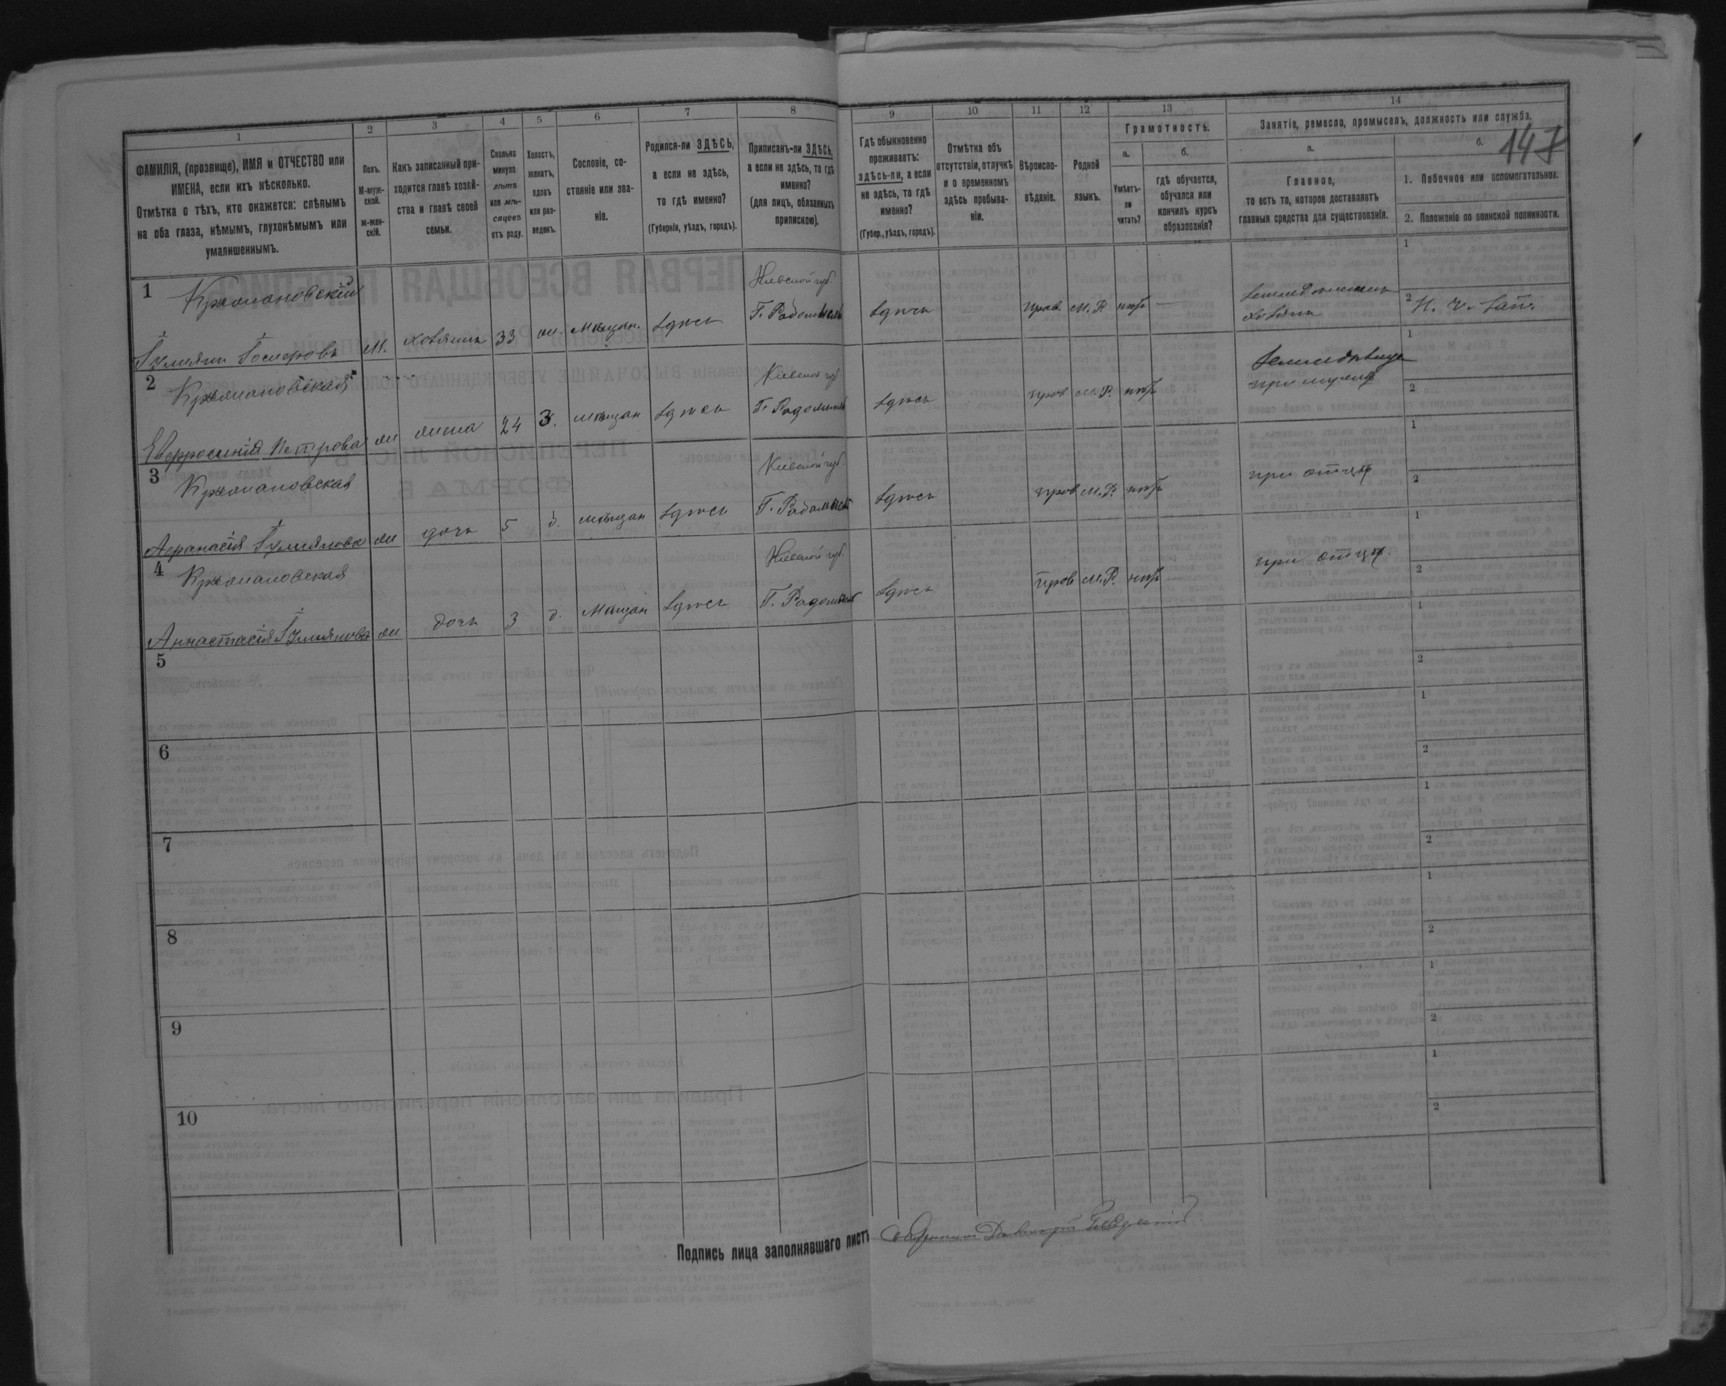 147
1
2
3
4
5
6
7
8
9
10
11
12
13
14
ФАМИЛІЯ, (прозвище), ИМЯ и ОТЧЕСТВО или
ИМЕНА, если ихъ нѣсколько.
Отмѣтка о тѣхъ, кто окажется: слѣпымъ
на оба глаза, нѣмымъ, глухонѣмымъ или
умалишеннымъ.
Полъ.
М-муж-
ской.
ж-жен-
скій.
Какъ записанный при-
ходится главѣ хозяй-
ства и главѣ своей
семьи.
Сколько
минуло
лѣтъ
или мѣ-
сяцевъ
отъ роду.
Холостъ,
женатъ,
вдовъ
или раз-
веденъ.
Сословіе, со-
стояніе или зва-
ніе.
Родился-ли ЗДѢСЬ,
а если не здѣсь,
то гдѣ именно?
(Губернія, уѣздъ, городъ).
Приписанъ-ли ЗДѢСЬ,
а если не здѣсь, то гдѣ
именно?
(для лицъ, обязанныхъ
припискою).
Гдѣ обыкновенно
проживаетъ:
здѣсь-ли, а если
не здѣсь, то гдѣ
именно?
(Губер., уѣздъ, городъ).
Отмѣтка объ
отсутствіи, отлучкѣ
и о временномъ
здѣсь пребыва-
ніи.
Вѣроиспо-
вѣданіе.
Родной
языкъ.
Грамотность.
а.
Умѣетъ-
ли
читать?
б.
гдѣ обучается,
обучался или
кончилъ курсъ
образованія?
Занятіе, ремесло, промыселъ, должность или служба.
а.
Главное,
то есть то, которое доставляетъ
главныя средства для существованія.
б.
1. Побочное или вспомогательное.
2. Положеніе по воинской повинности.
1
Кржановскій
М. хозяинъ 33 мѣщан. здѣсь
Кіевской губ.
Г. Радомысль
здѣсь
прав. М. Р. нѣтъ
хозяинъ
1
2
2
Кржановская
Евфросинія Петрова
жена 24 З. мѣщан здѣсь
Кіевской губ.
Г. Радомысль
здѣсь
прав М. Р. нѣтъ
при мужѣ
1
2
3
Кржановская
Афанасія
дочь 5 д. мѣщан здѣсь
Кіевской губ.
Г. Радомысль
здѣсь
прав М. Р. нѣтъ
при отцѣ
1
2
4
Кржановская
Анастасія
дочь 3 д. Мѣщан здѣсь
Кіевской губ.
Г. Радомысль
здѣсь
прав М. Р. нѣтъ
при отцѣ.
1
2
5
1
2
6
1
2
7
1
2
8
1
2
9
1
2
10
1
2
Подпись лица заполнявшаго листъ